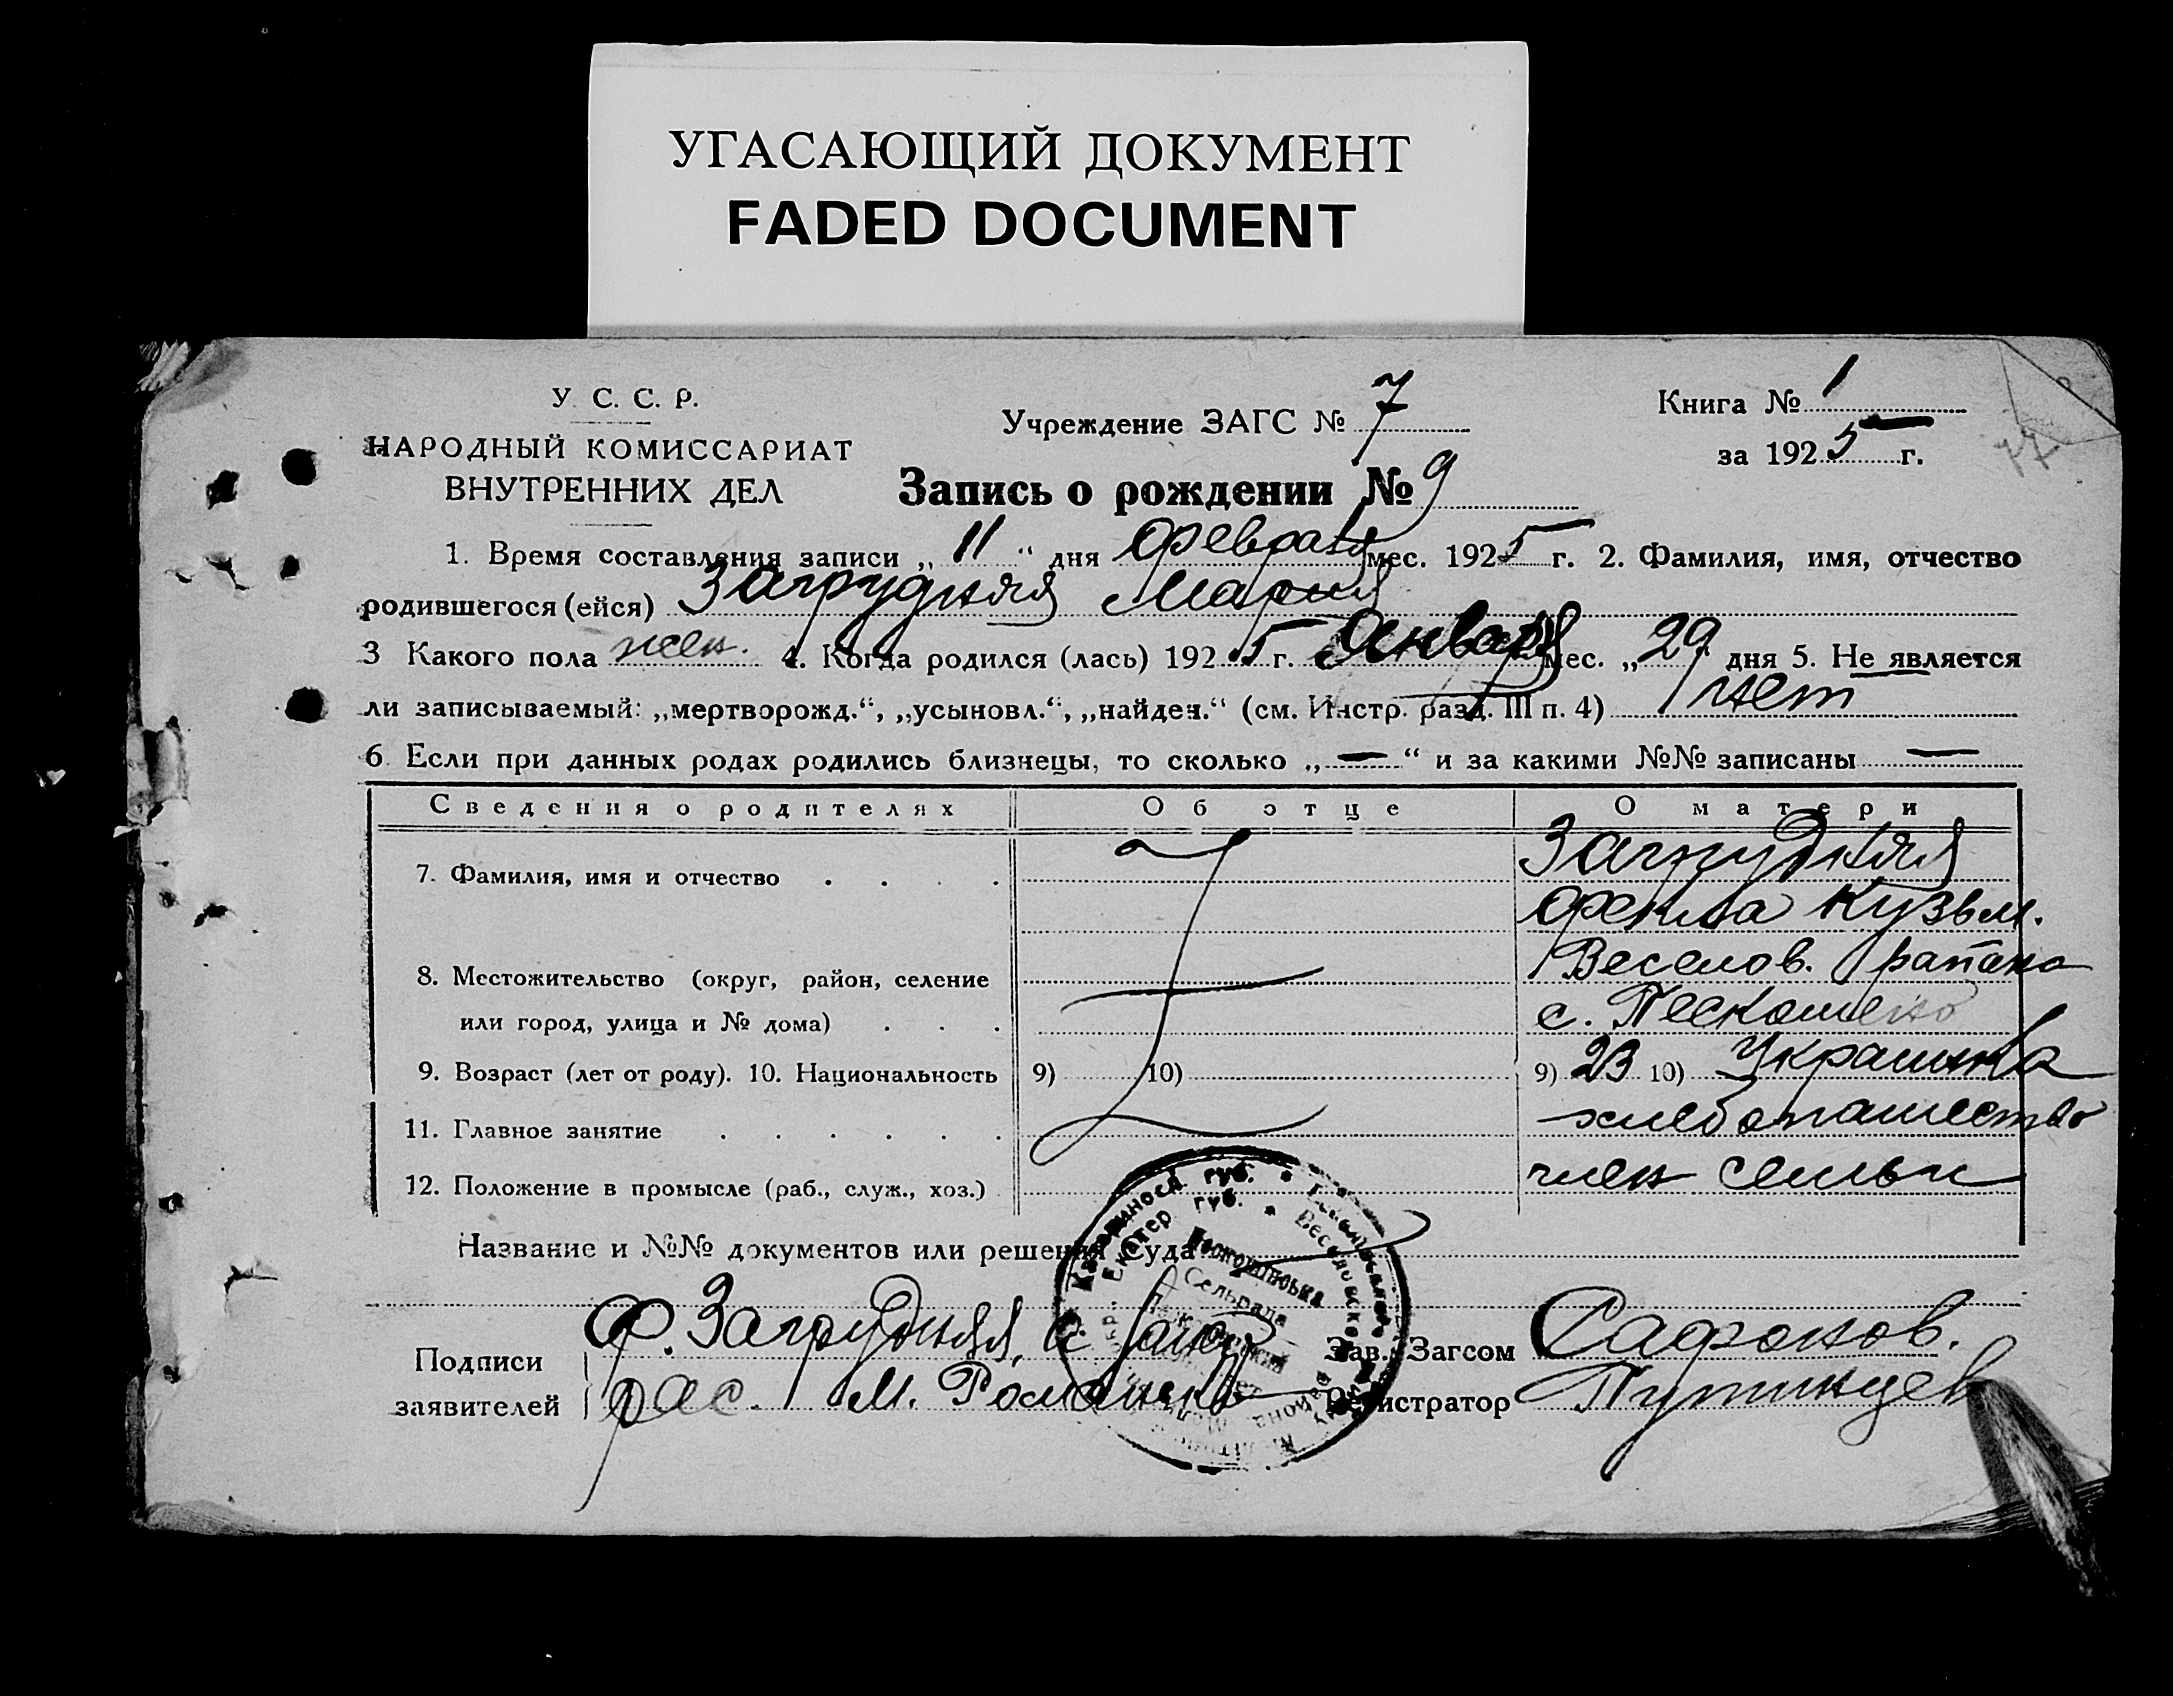 УГАСАЮЩИЙ ДОКУМЕНТ
FADED DOCUMENT
У. С. С. Р.
НАРОДНЫЙ КОМИССАРИАТ
ВНУТРЕННИХ ДЕЛ
Учреждение ЗАГС № 7
Книга № 1
за 1925 г.
77
Запись о рождении № 9
1. Время составления записи „ 11 “ дня февраля мес. 1925 г. 2. Фамилия, имя, отчество
родившегося (ейся) Загрудняя Мария
3 Какого пола жен. 4. Когда родился (лась) 1925 г. Января мес. „ 29 “ дня 5. Не является
ли записываемый: „мертворожд.“, „усыновл.“, „найден.“ (см. Инстр. разд. III п. 4) нет
6. Если при данных родах родились близнецы, то сколько „ — “ и за какими №№ записаны —
Сведения о родителях Об отце О матери
7. Фамилия, имя и отчество . . . . Загрудняя
Фекла Кузьм.
8. Местожительство (округ, район, селение Веселов. района
или город, улица и № дома) . . . с. Пескошено
9. Возраст (лет от роду). 10. Национальность 9) 10) 9) 23 10) Украинка
11. Главное занятие . . . . . . хлебопашество
12. Положение в промысле (раб., служ., хоз.) член семьи
Название и №№ документов или решения Суда
Екатер губ. Веселовско
Сельрада
Подписи
заявителей
Ф. Загрудняя, а за нее
рас. М. Романенко
Зав. Загсом Сафонов.
Регистратор Путинцев